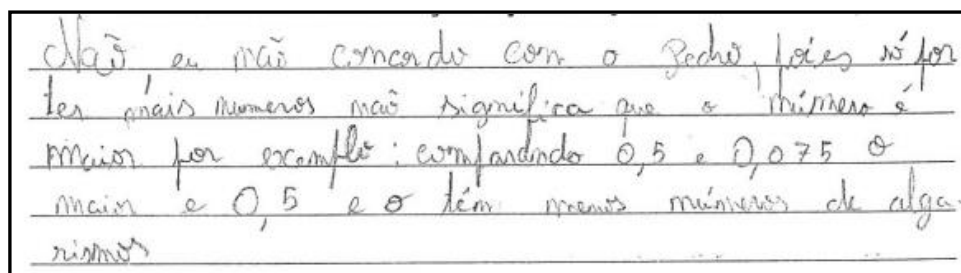 Não eu não concordo com o Pedro, poies só por
ter mais numeros não significa que o número é
maior por exemplo: comparando 0,5 e 0,075 o
maior e 0,5 e o têm menos números de alga-
rismos